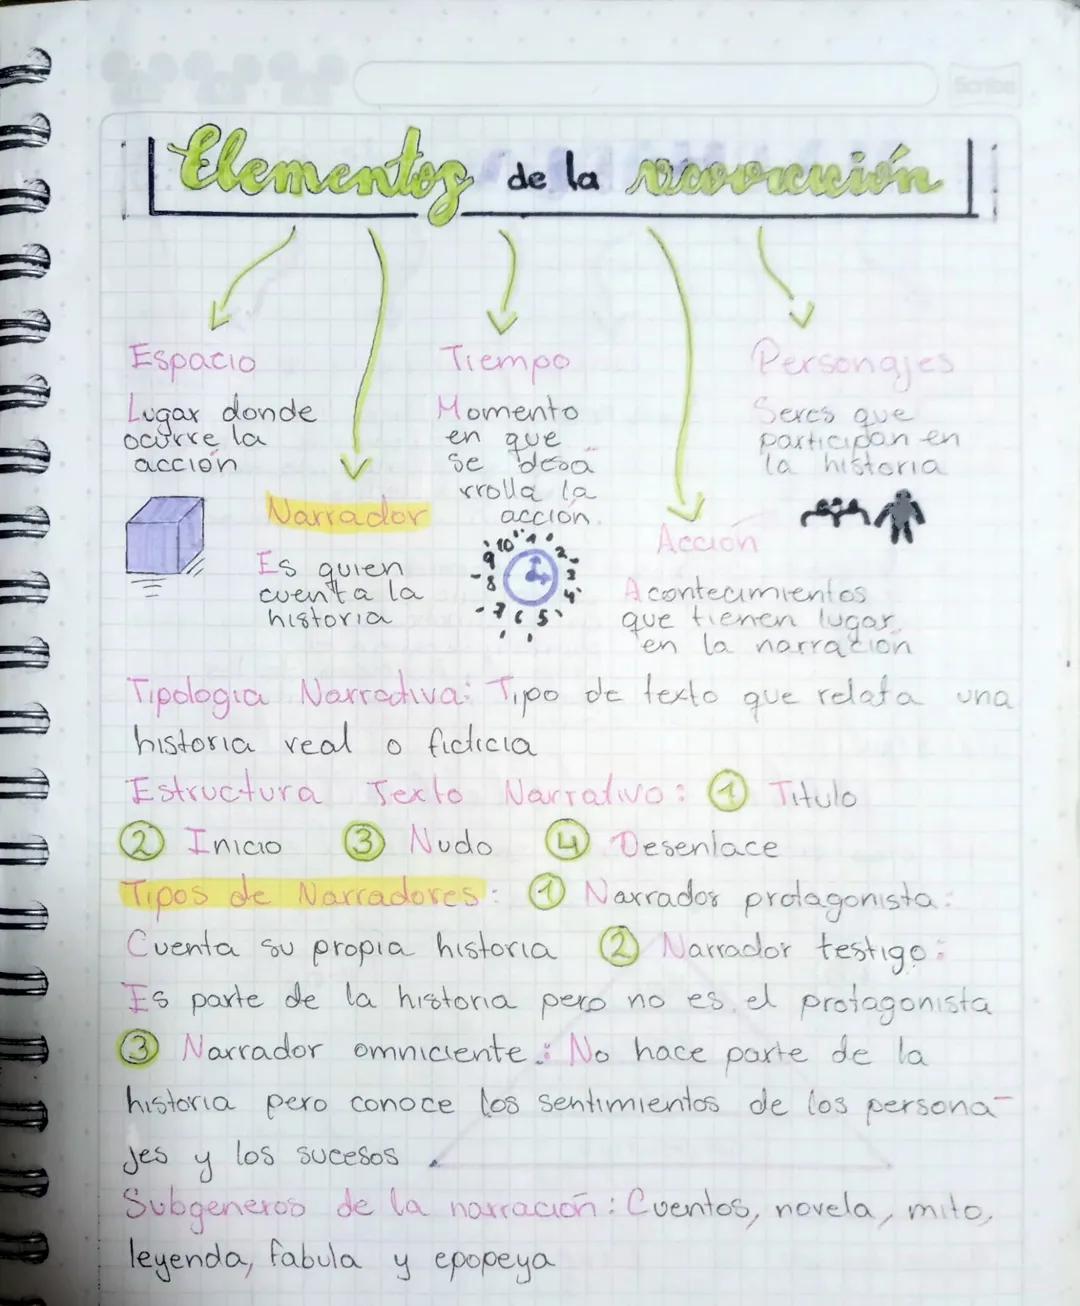 Scribe
Elementos de la narración
Espacio
Lugar donde
ocurre la
acción
Narrador
Es quien
cuenta la
historia
Tiempo
Momento
en que
se desa
rrolla la
acción.
10 1 2 3 4 5 6 7 8 9
Acción
Acontecimientos
que tienen lugar
en la narración
Personajes
Seres que
participan en
la historia
Tipologia Narrativa: Tipo de texto que relata una
historia real o ficticia
Estructura Texto Narrativo: 1 Titulo
2 Inicio 3 Nudo 4 Desenlace
Tipos de Narradores: 1 Narrador protagonista:
Cuenta su propia historia 2 Narrador testigo:
Es parte de la historia pero no es el protagonista
3 Narrador omniciente: No hace parte de la
historia pero conoce los sentimientos de los persona-
jes y los sucesos
Subgeneros de la narración: Cuentos, novela, mito,
leyenda, fabula y epopeya